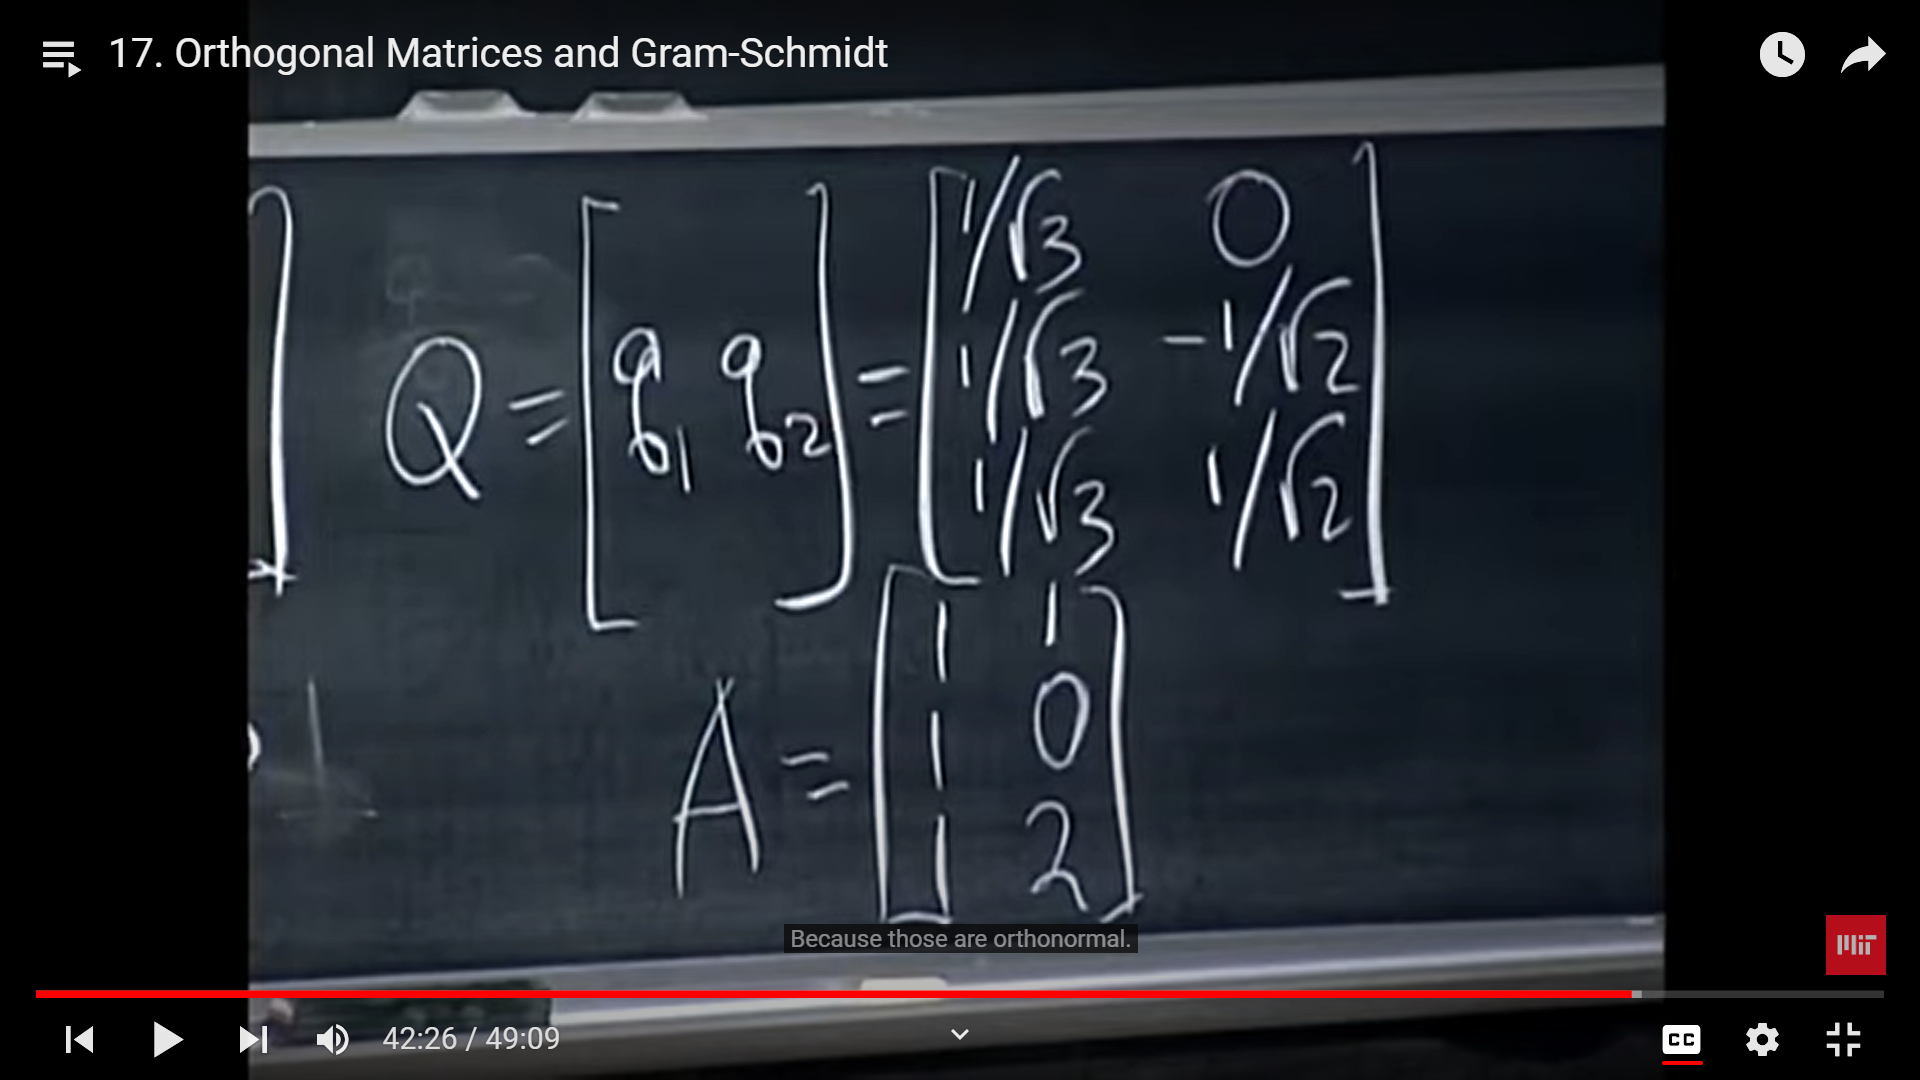 17. Orthogonal Matrices and Gram-Schmidt
Q = [q1 q2] = [1/√3 0
1/√3 -1/√2
1/√3 1/√2]
A = [1 1
1 0
1 2]
Because those are orthonormal.
MIT
42:26 / 49:09
CC